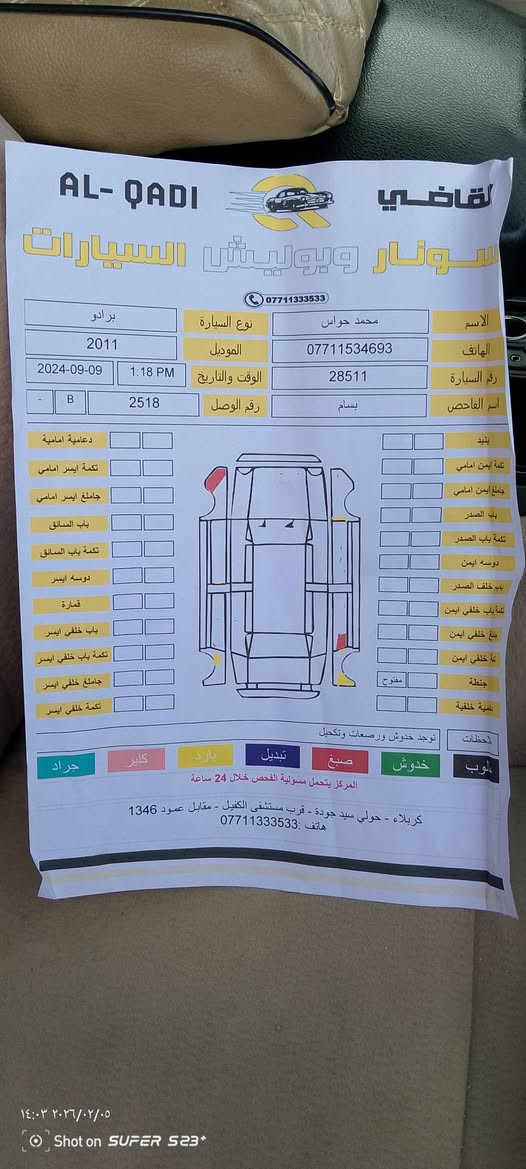 AL- QADI
القاضي
سونار وبوليش السيارات
07711333533
الاسم محمد حواس نوع السيارة برادو
الهاتف 07711534693 الموديل 2011
رقم السيارة 28511 الوقت والتاريخ 1:18 PM 2024-09-09
اسم الفاحص بسام رقم الوصل 2518 B -
بنيد دعامية امامية
تكمة ايمن امامي تكمة ايسر امامي
جاملغ ايمن امامي جاملغ ايسر امامي
باب الصدر باب السائق
تكمة باب الصدر تكمة باب السائق
دوسه ايمن دوسه ايسر
باب خلف الصدر قمارة
تكمة باب خلفي ايمن باب خلفي ايسر
جاملغ خلفي ايمن تكمة باب خلفي ايسر
تكمة خلفي ايمن جاملغ خلفي ايسر
جنطة مفتوح تكمة خلفي ايسر
دعامية خلفية
الملاحظات توجد خدوش ورصعات وتكحيل
خدوش صبغ تبديل بارد كلير جراد
المركز يتحمل مسولية الفحص خلال 24 ساعة
كربلاء - حولي سيد جودة - قرب مستشفى الكفيل - مقابل عمود 1346
هاتف :07711333533
١٤:٠٣ ٢٠٢٦/٠٢/٠٥
Shot on SUPER S23+